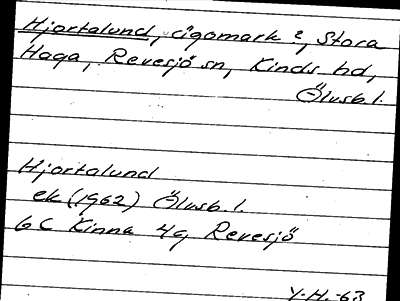 Hjortalund, ägomark ?, Stora
Haga, Revesjö sn, Kinds hd,
Älvsb. l.
Hjortalund
ek (1962) Älvsb. l.
6 C Kinna 4g Revesjö
Y.H. -63